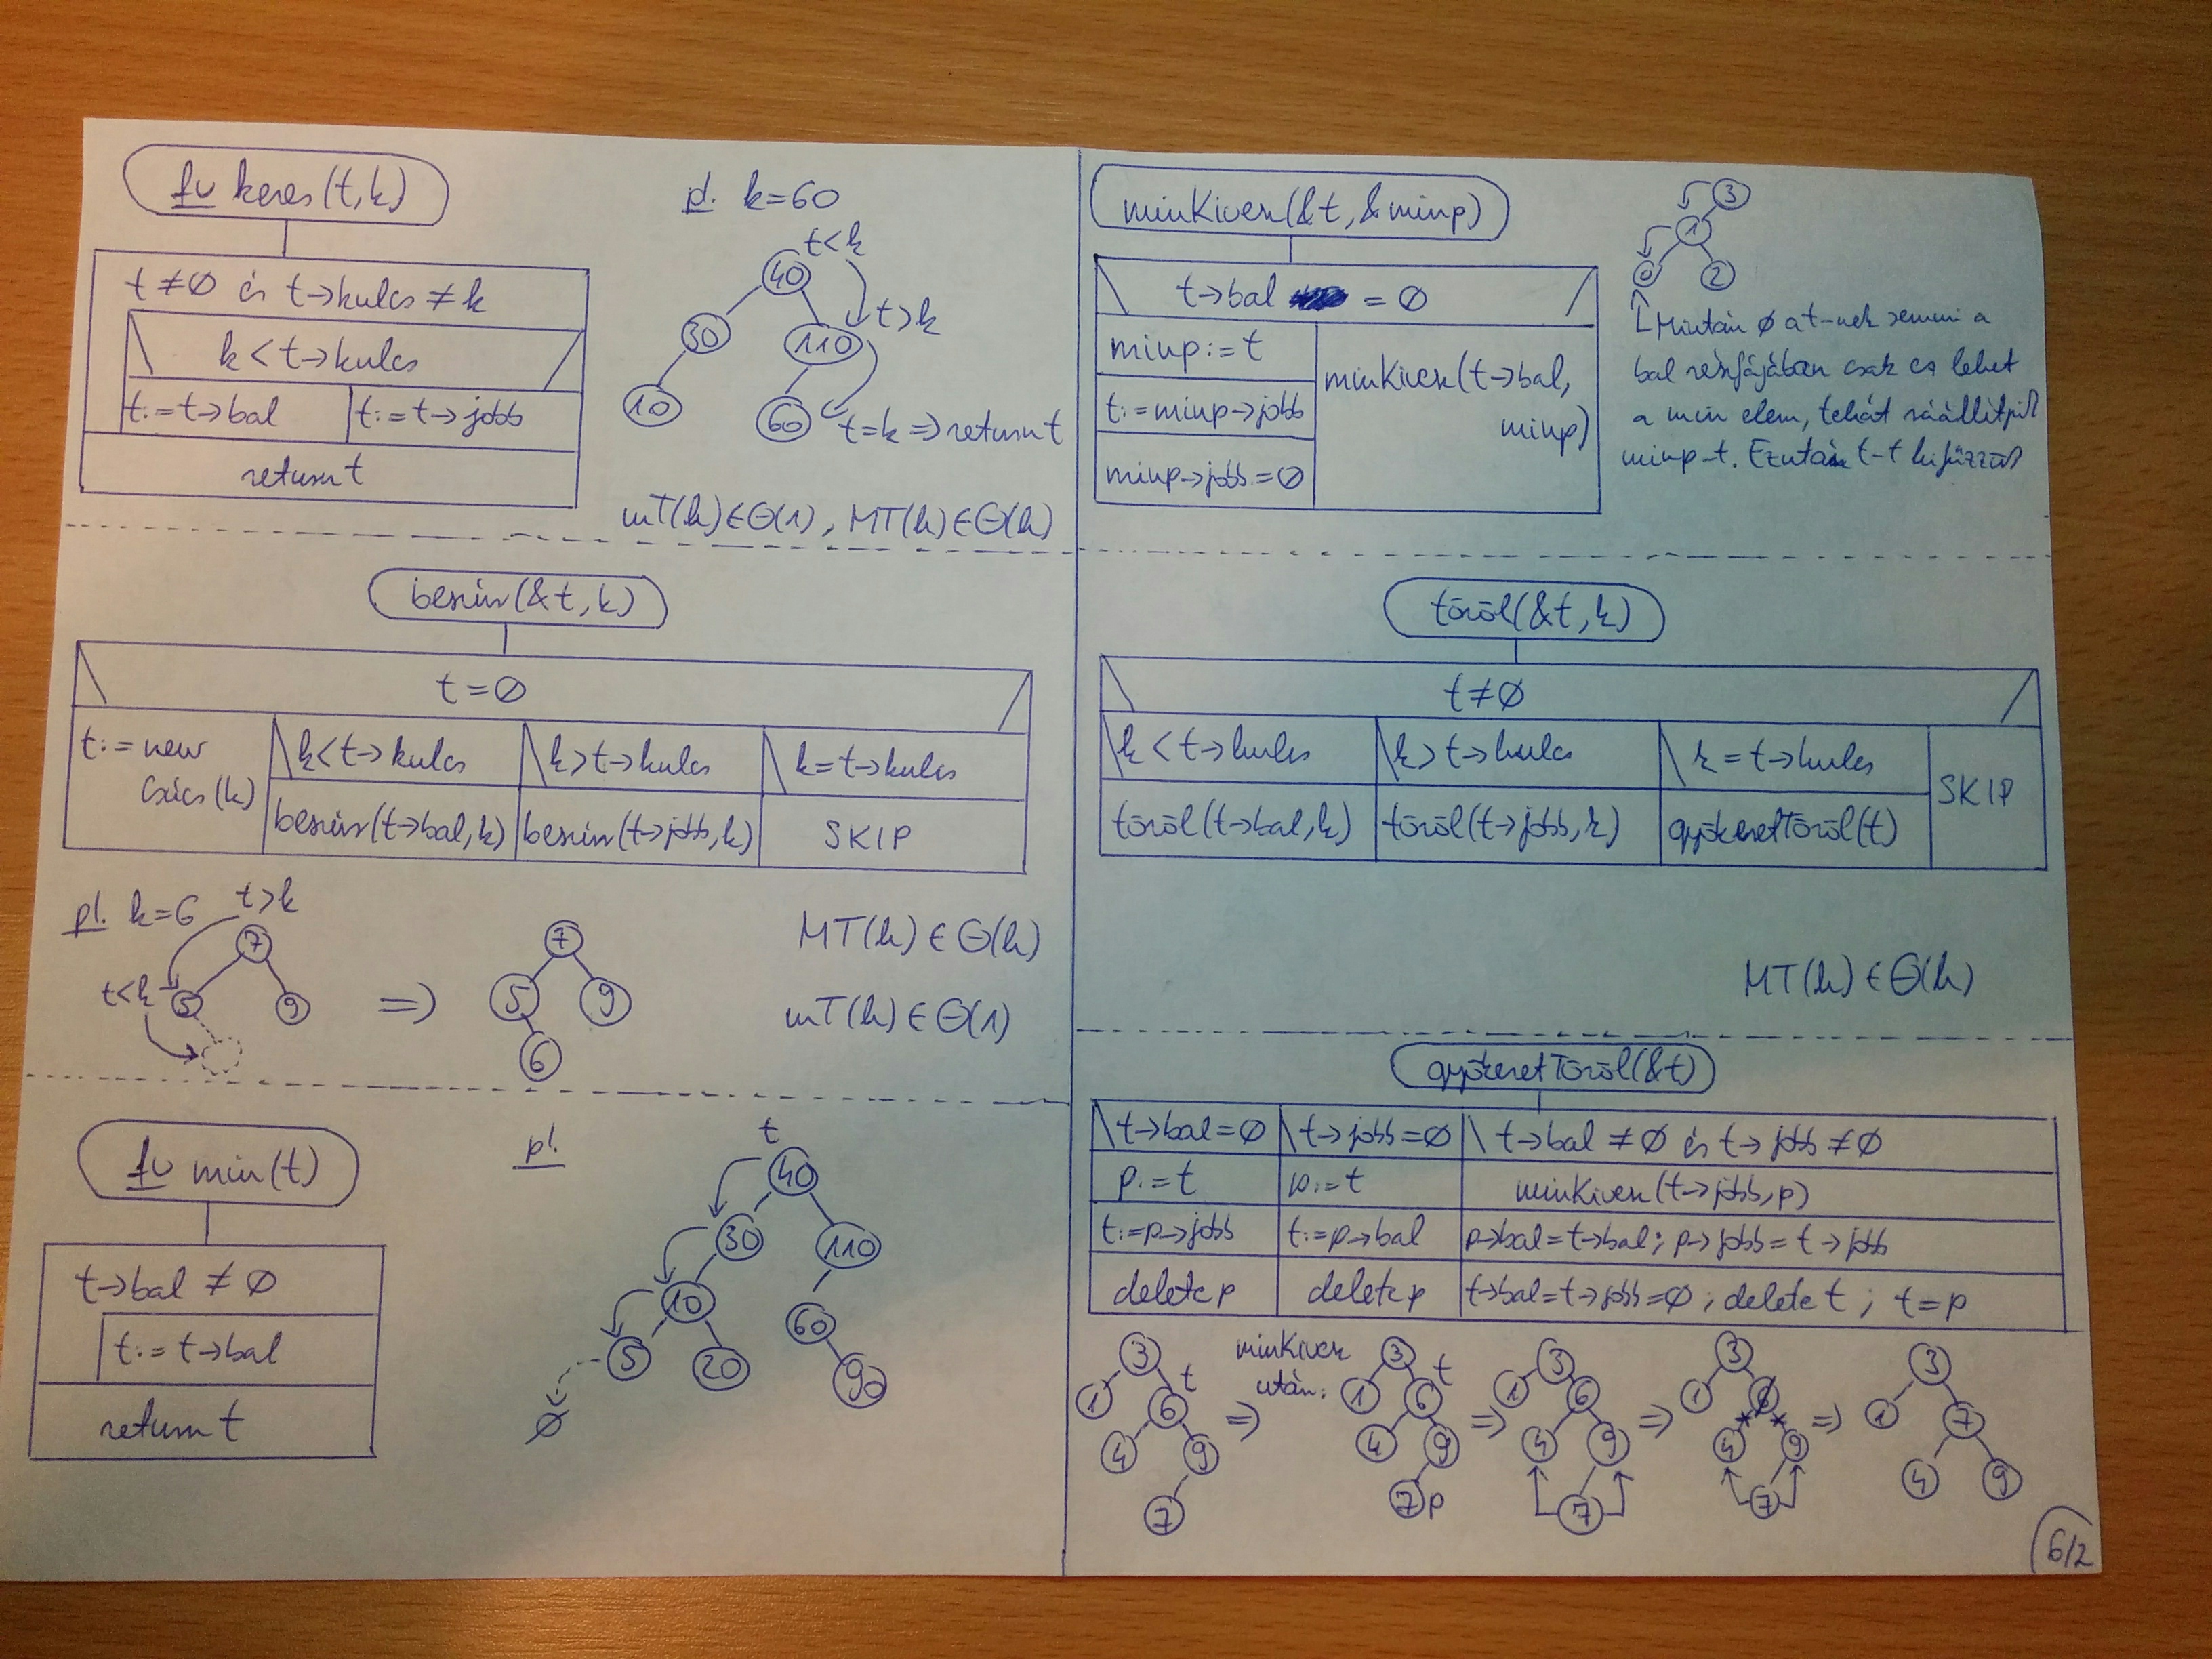 fv keres(t,k)
t≠∅ és t→kulcs ≠ k
k < t→kulcs
t:=t→bal
t:=t→jobb
return t
pl. k=60
t<k
40
t>k
30
110
10
60
t=k => return t
mT(h)∈Θ(1), MT(h)∈Θ(h)
beszúr(&t,k)
t=∅
t:=new
Csúcs(k)
k<t→kulcs
k>t→kulcs
k=t→kulcs
beszúr(t→bal,k)
beszúr(t→jobb,k)
SKIP
pl. k=6
t>k
7
t<k
5
9
=>
7
5
9
6
MT(h)∈Θ(h)
mT(h)∈Θ(1)
fv min(t)
t→bal ≠ ∅
t:=t→bal
return t
pl.
t
40
30
110
10
60
5
20
90
∅
minKivesz(&t,&minp)
t→bal = ∅
minp:=t
t:=minp→jobb
minp→jobb=∅
minKivesz(t→bal,
minp)
3
1
0
2
Miután ∅ a t-nek semmi a
bal részfájában csak ez lehet
a min elem, tehát ráállítjuk
minp-t. Ezután t-t kifűzzük
töröl(&t,k)
t≠∅
k<t→kulcs
k>t→kulcs
k=t→kulcs
SKIP
töröl(t→bal,k)
töröl(t→jobb,k)
gyökeretTöröl(t)
MT(h)∈Θ(h)
gyökeretTöröl(&t)
t→bal=∅
t→jobb=∅
t→bal ≠ ∅ és t→jobb ≠ ∅
p:=t
p:=t
minKivesz(t→jobb,p)
t:=p→jobb
t:=p→bal
p→bal=t→bal; p→jobb=t→jobb
delete p
delete p
t→bal=t→jobb=∅; delete t; t=p
3
1
t
6
4
9
7
=>
minKivesz
után:
3
1
t
6
4
9
7 p
=>
3
1
6
4
9
7
=>
3
1
4
9
7
=>
3
1
7
4
9
6/2